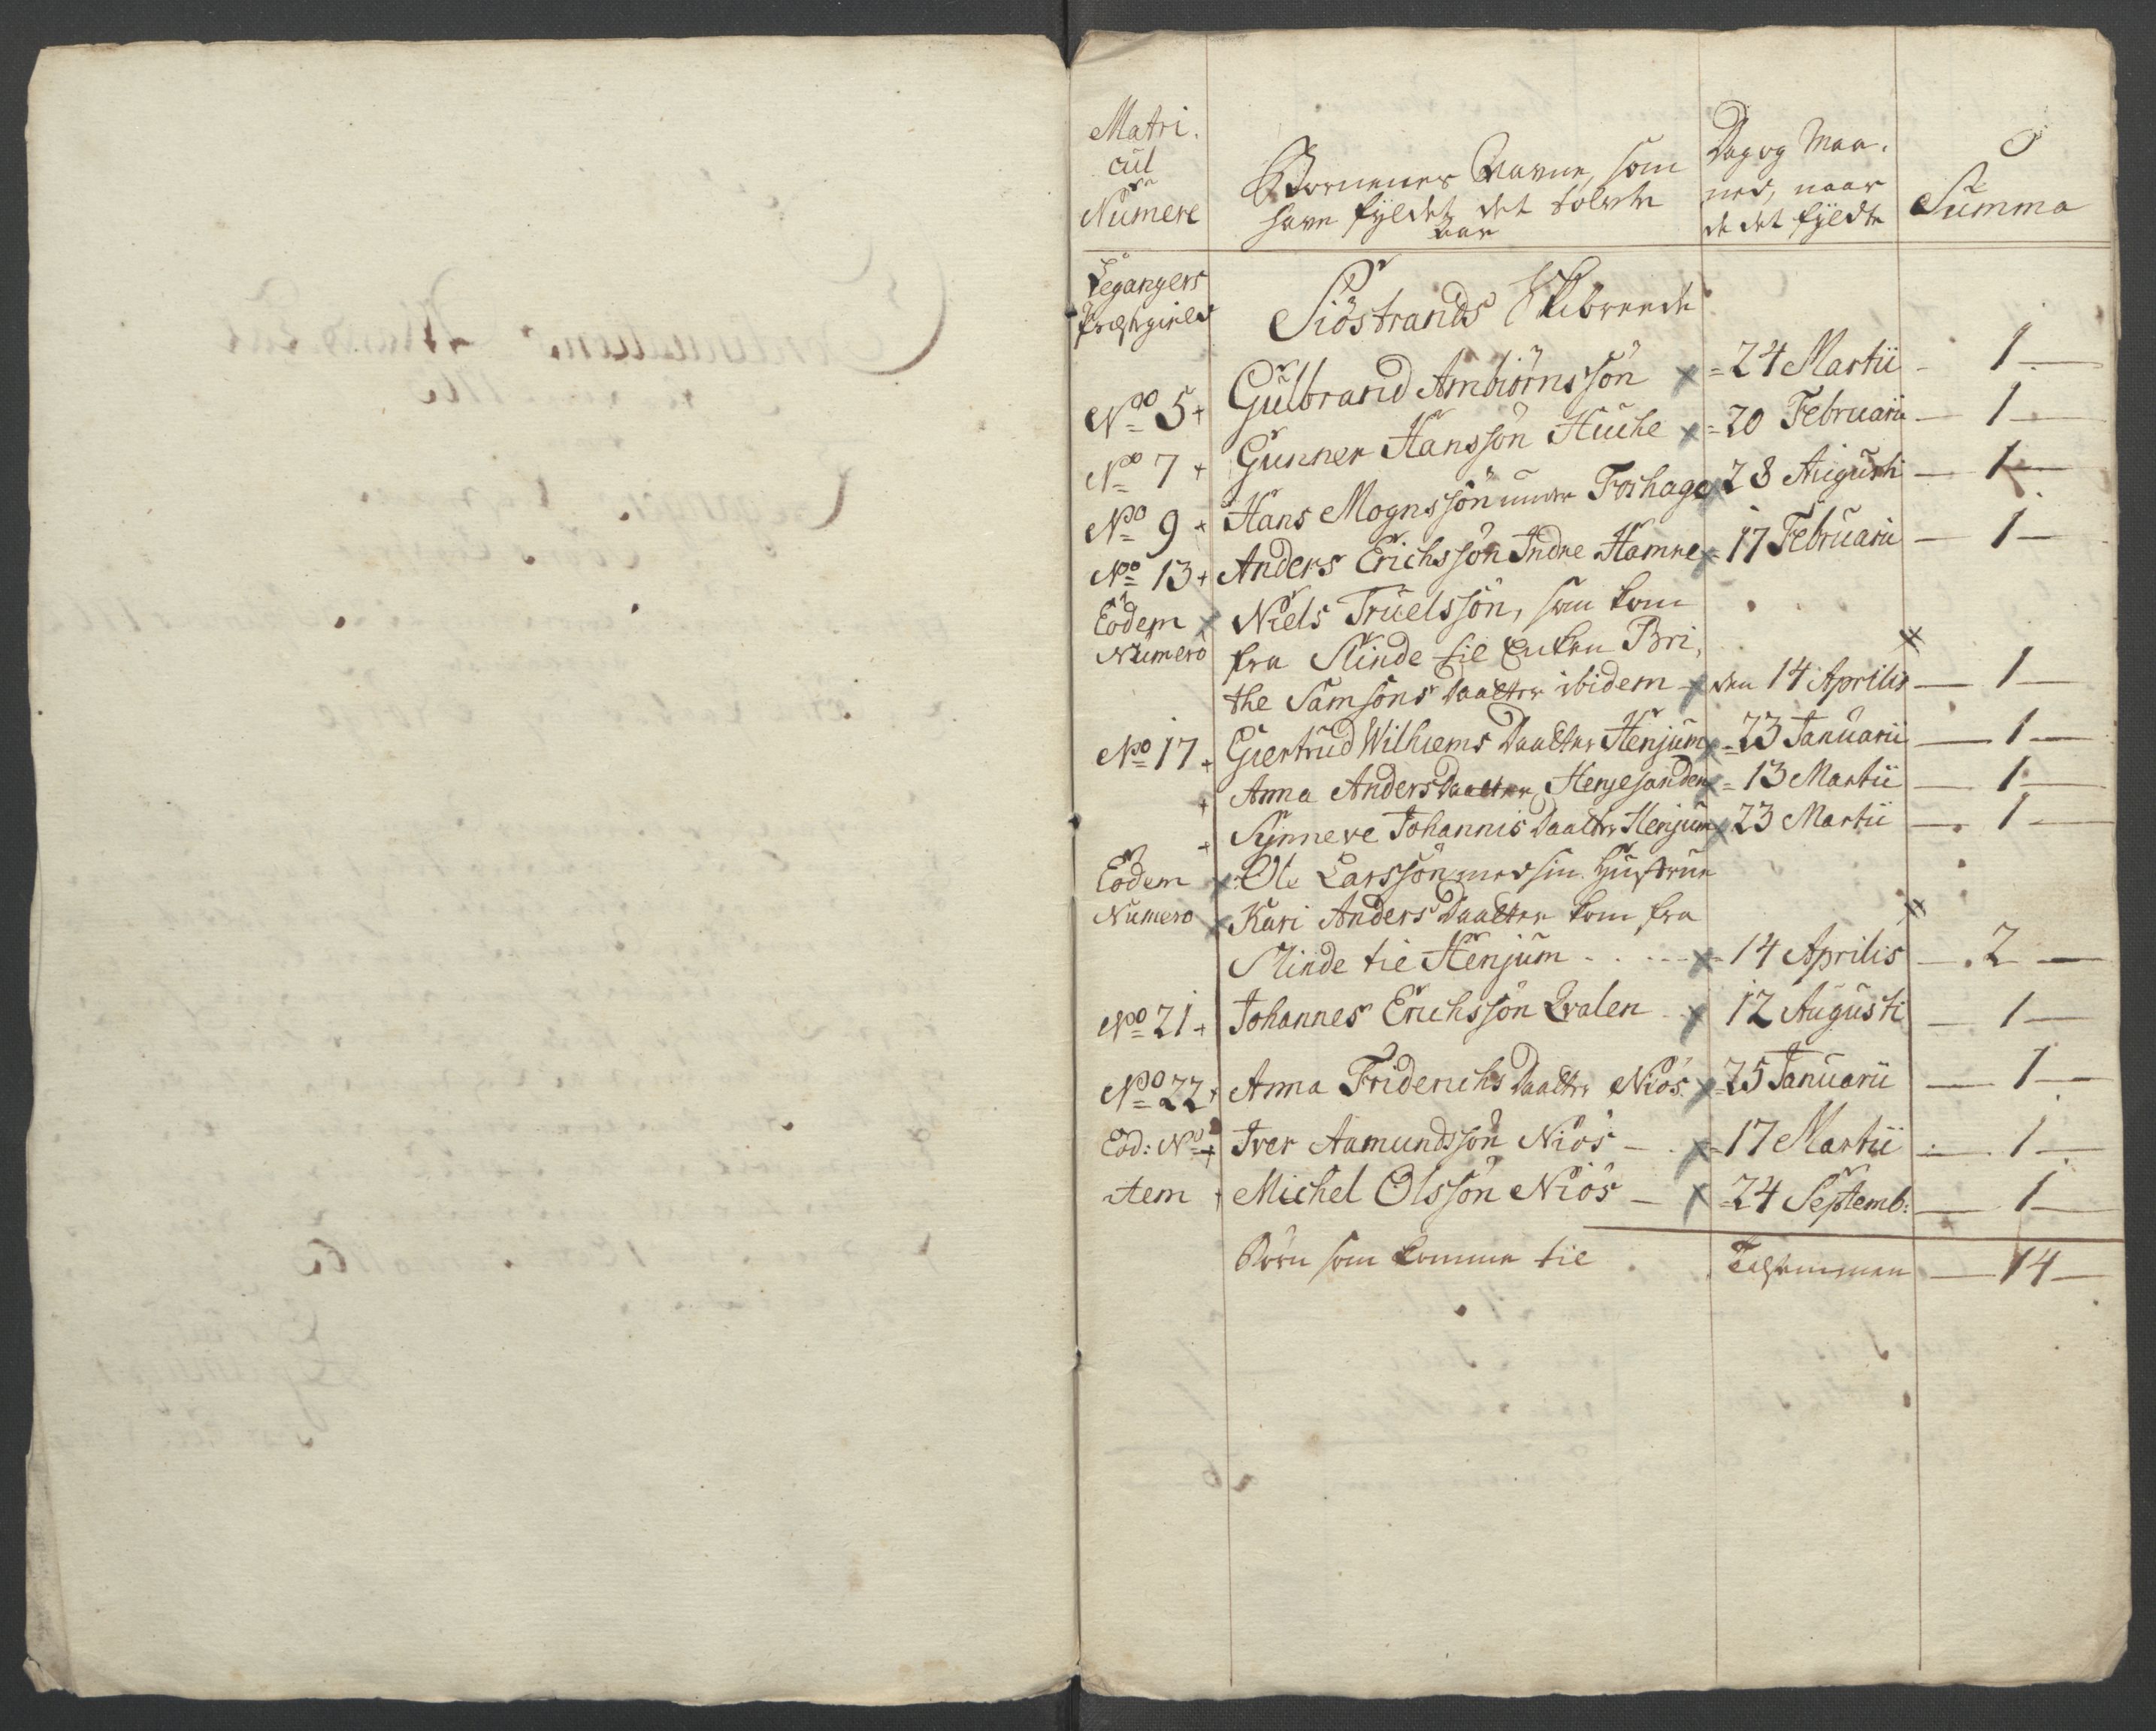 Matri.
cul
Numere
Börnenes Navne, som
have fyldet det tolvte
Aar
Dag og Maa-
ned, naar
de det fyldte
Summa
Leganger
Præstegield
Siöstrands Skibreede
No 5 + Gulbrand Ambiörnssön x = 24 Martii - 1 -
No 7 + Gunner Hanssön Huche x = 20 Februarii - 1 -
No 9 + Hans Mognssön under Foshage x 28 Augusti - 1 -
No 13 + Anders Erichssön Indre Hamre x = 17 Februarii - 1 -
Eodem x Niels Truelssön, som kom
Numero fra Slinde til Enken Bri-
the Samsons Daatter ibidem - x den 14 Aprilis - 1 -
No 17 + Giertrud Wilhiems Daatter Henjum x = 23 Januarii - 1 -
+ Anna Anders Daatter Henjesanden x = 13 Martii - 1 -
+ Synneve Johannis Daatter Henjum x 23 Martii - 1 -
Eodem x Ole Larssön med sin Hustrue
Numero x Kari Anders Daatter kom fra
Slinde til Henjum - . . - - x = 14 Aprilis - 2 -
No 21 + Johannes Erichssön Qvalen x 12 Augusti - 1 -
No 22 + Anna Friderichs Daatter Niös x = 25 Januarii - 1 -
Eod: No + Iver Aamundssön Niös - x = 17 Martii - 1 -
item + Michel Olssön Niös - x = 24 Septemb: - 1 -
Börn som komme til Talsummen - 14 -